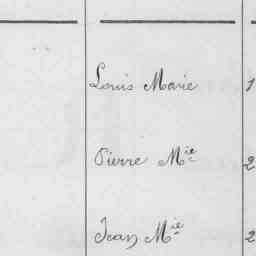 Louis Marie 1
Pierre Mie 2
Jean Mie 2